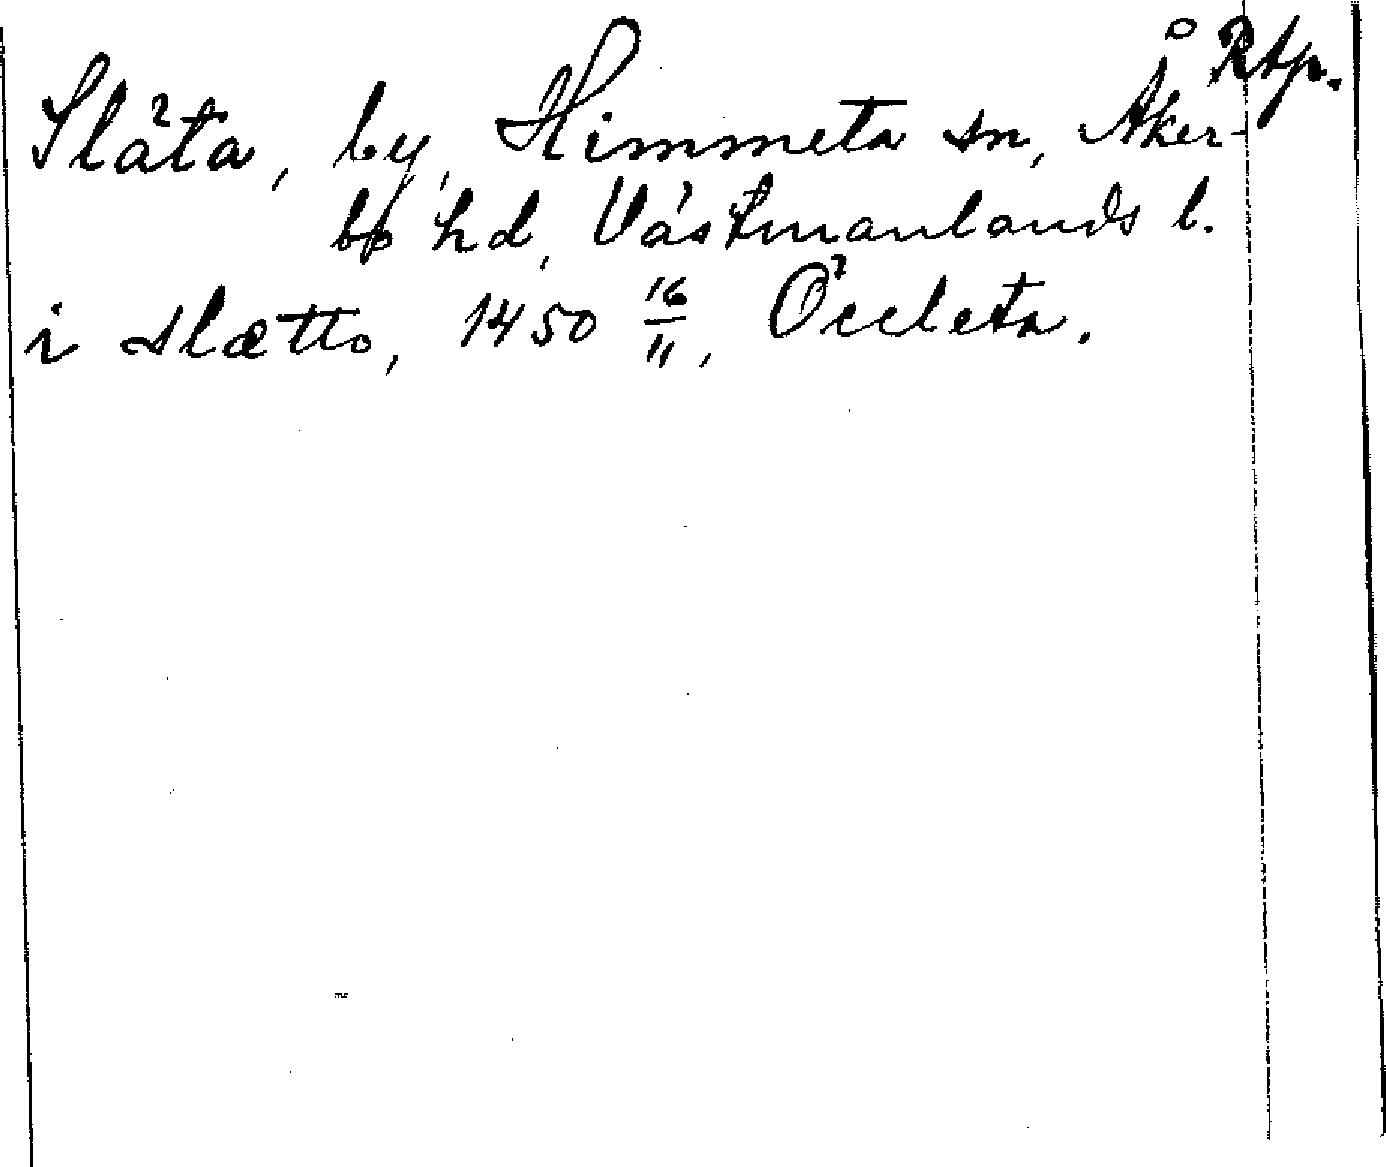 Rtp.
Släta, by, Himmeta sn, Åker-
bo hd, Västmanlands l.
i slætto, 1450 16/11, Öccleta.